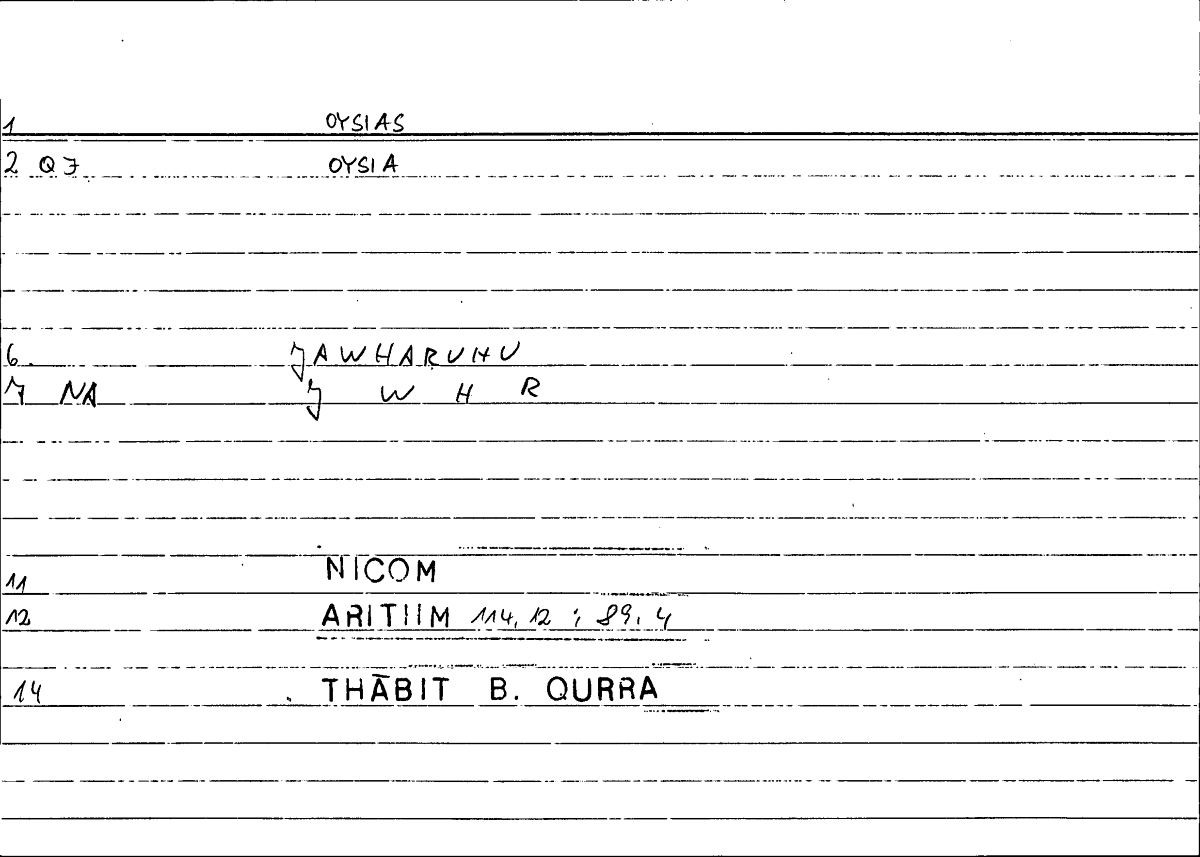 1 OYSIAS
2 QJ OYSIA
6. JAWHARUHU
7 NA J W H R
11 NICOM
12 ARITIIM 114,12 ; 89.4
14 THĀBIT B. QURRA